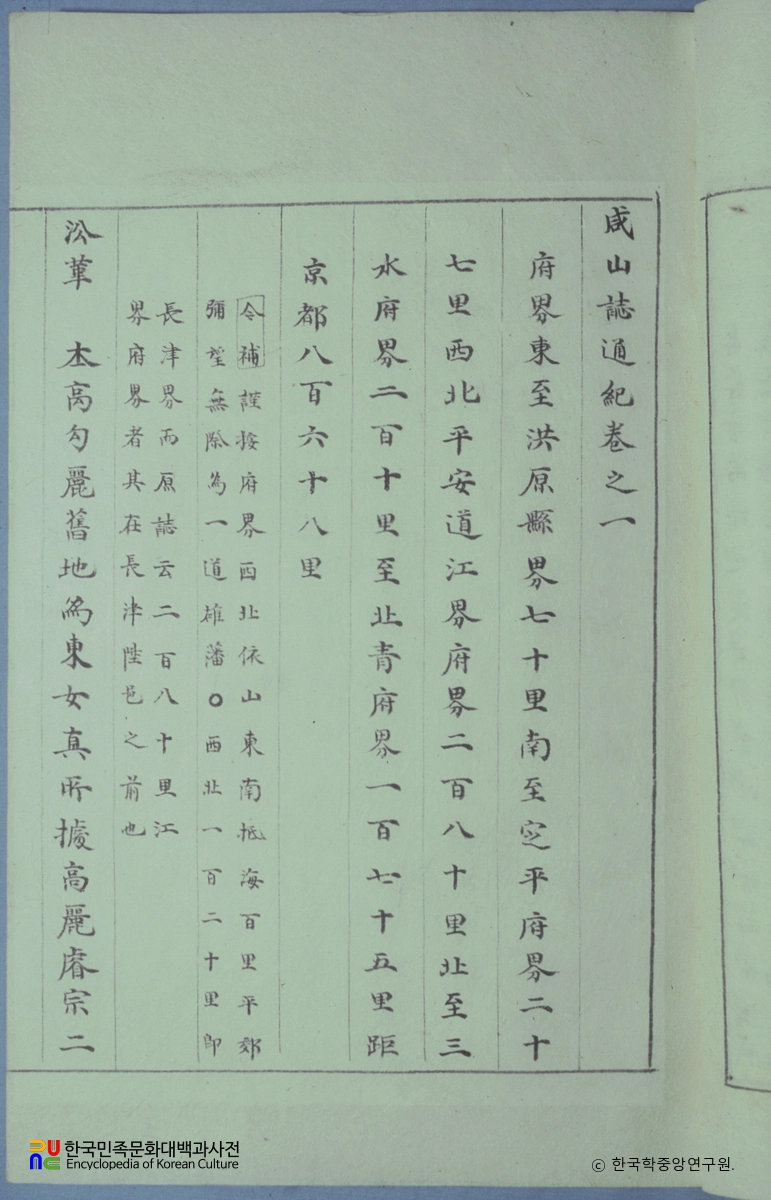 咸山誌通紀卷之一
府界東至洪原縣界七十里南至定平府界二十
七里西北平安道江界府界二百八十里北至三
水府界二百十里至北青府界一百七十五里距
京都八百六十八里
今補謹按府界西北依山東南抵海百里平郊
彌望無際為一道雄藩○西北一百二十里卽
長津界而原誌云二百八十里江
界府界者其在長津陞邑之前也
沿革 本高勾麗舊地爲東女真所據高麗睿宗二
한국민족문화대백과사전
Encyclopedia of Korean Culture
ⓒ 한국학중앙연구원.